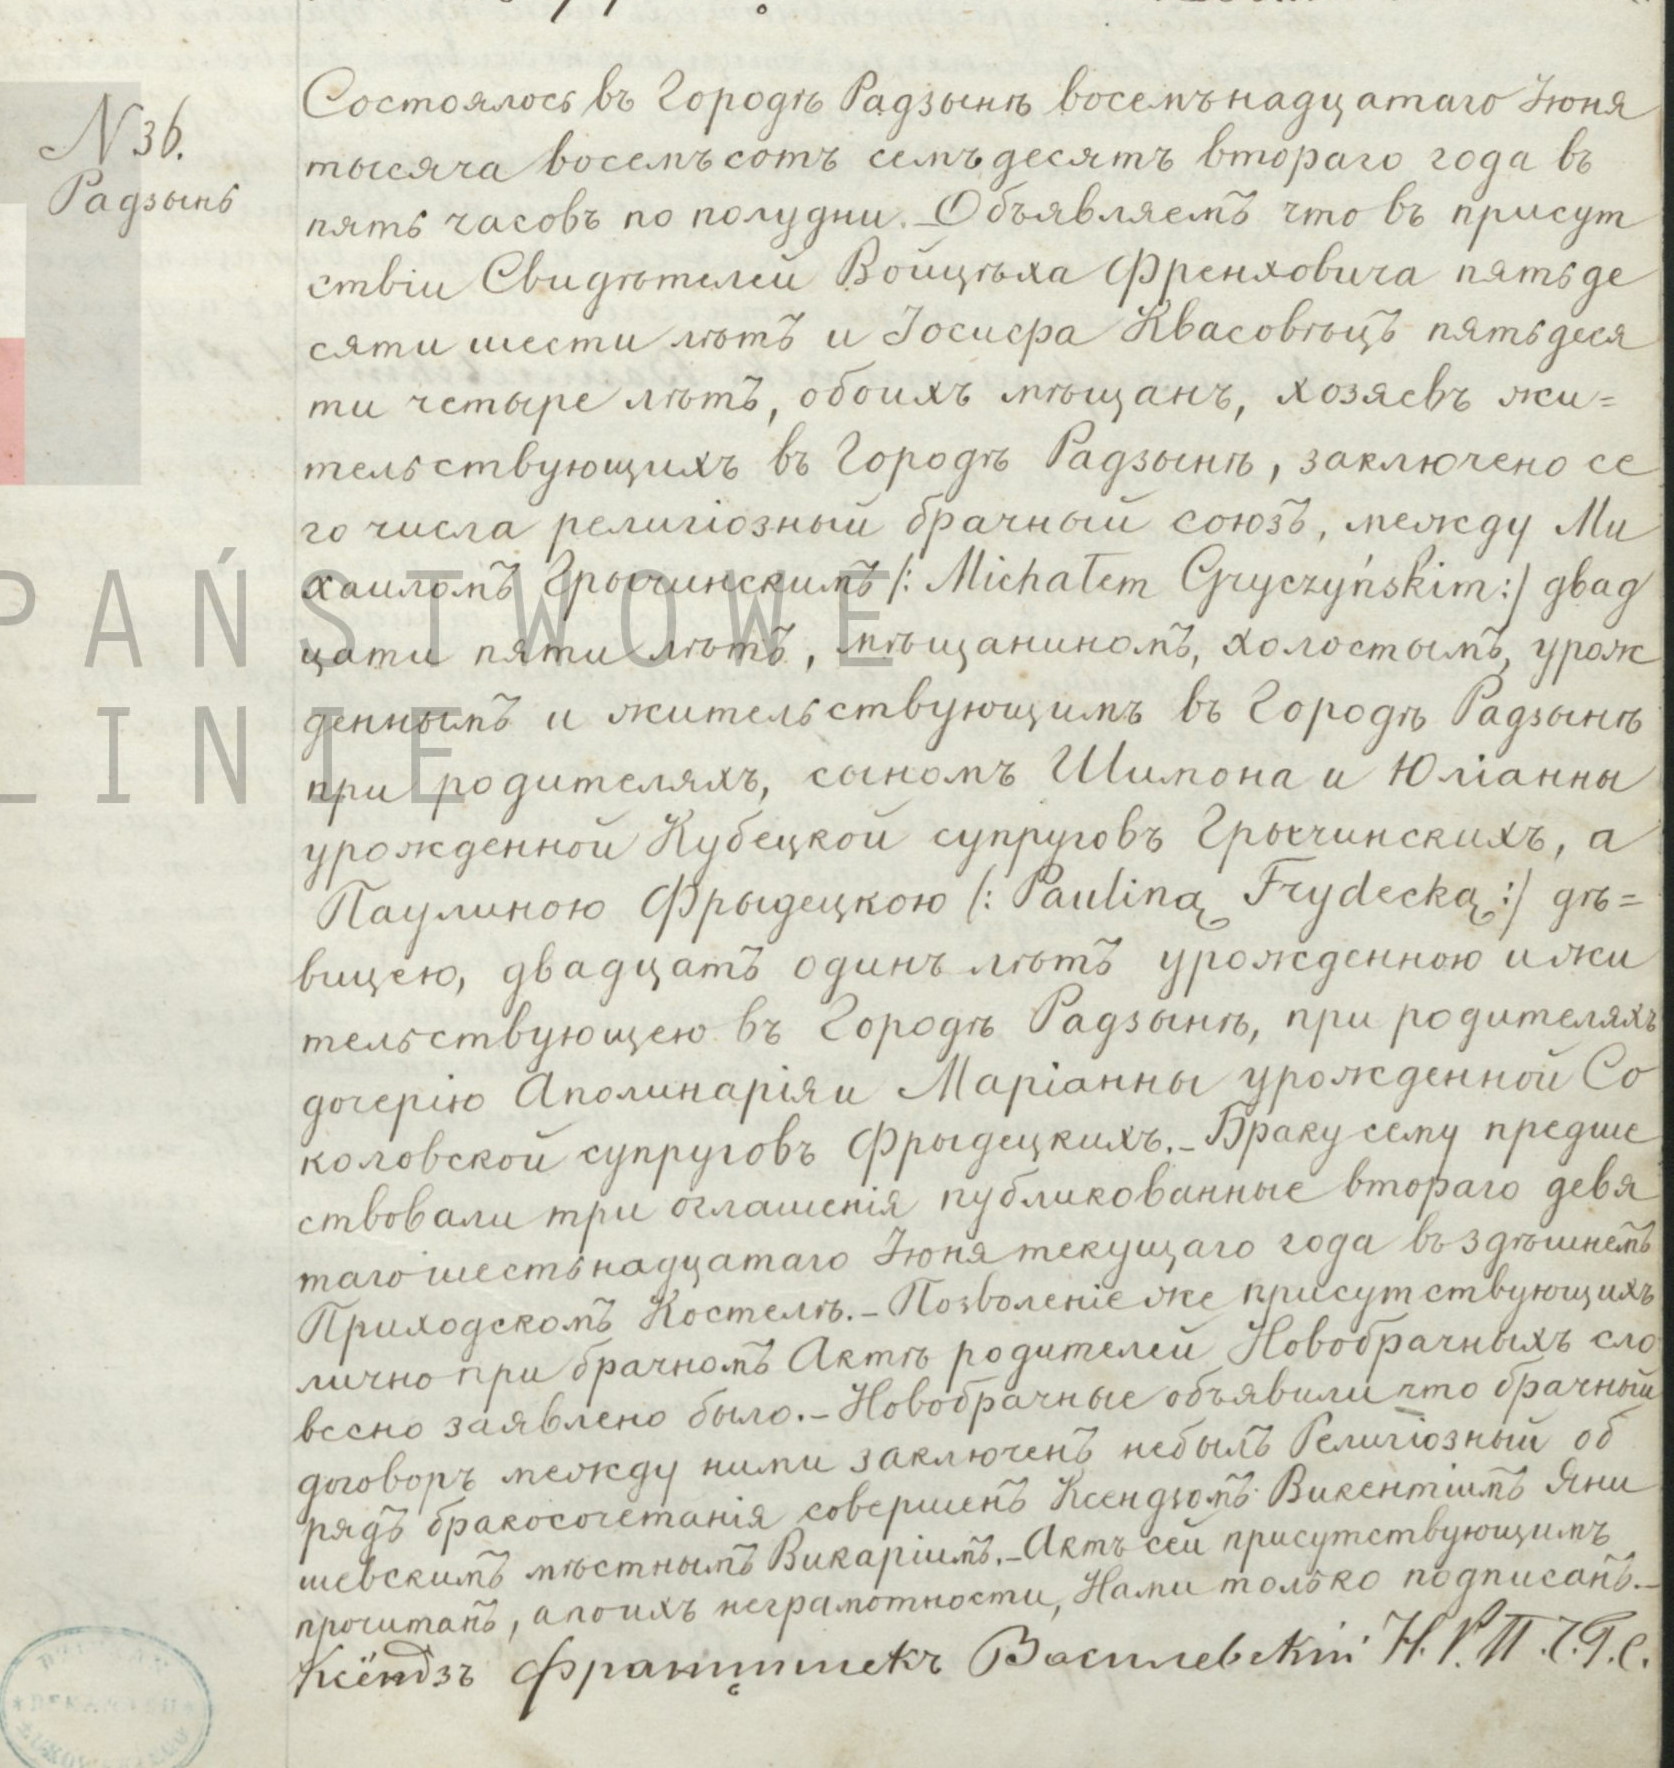 N 36.
Радзынь
Состоялось въ Городѣ Радзынѣ восемънадцатаго Іюня
тысяча восемъсотъ семъдесятъ втораго года въ
пять часовъ по полудни. – Объявляемъ что въ присут
ствіи Свидѣтелей Войцѣха Френховича пятьде
сяти шести лѣтъ и Іосифа Квасовѣцъ пятьдеся
ти четыре лѣтъ, обоихъ мѣщанъ, хозяевъ жи=
тельствующихъ въ Городѣ Радзынѣ, заключено се
го числа религіозный брачный союзъ, между Ми
хаиломъ Грычинскимъ /: Michałem Gryczyńskim :/ двад
цати пяти лѣтъ, мѣщаниномъ, холостымъ, урож
деннымъ и жительствующимъ въ Городѣ Радзынѣ
при родителяхъ, сыномъ Шимона и Юліанны
урожденной Кубецкой супруговъ Грычинскихъ, а
Паулиною Фрыдецкою /: Pauliną Frydecką :/ дѣ=
вицею, двадцатъ одинъ лѣтъ урожденною и жи
тельствующею въ Городѣ Радзынѣ, при родителяхъ
дочерію Аполинарія и Маріанны урожденной Со
коловской супруговъ Фрыдецкихъ. – Браку сему предше
ствовали три оглашенія публикованные втораго девя
таго шестьнадцатаго Іюня текущаго года въ здѣшнемъ
Приходскомъ Костелѣ. – Позволеніе же присутствующихъ
лично при брачномъ Актѣ родителей Новобрачныхъ сло
весно заявлено было. – Новобрачные объявили что брачный
договоръ между ними заключенъ небылъ Религіозный об
рядъ бракосочетанія совершенъ Ксендзомъ Викентіимъ Яни
шевскимъ мѣстнымъ Викаріимъ. – Актъ сей присутствующимъ
прочитанъ, а по ихъ неграмотности, Нами только подписанъ. –
Ксёндзъ Францишекъ Василевскій Н. Р. П. С. Г. С.
PAŃSTWOWE
LINIE